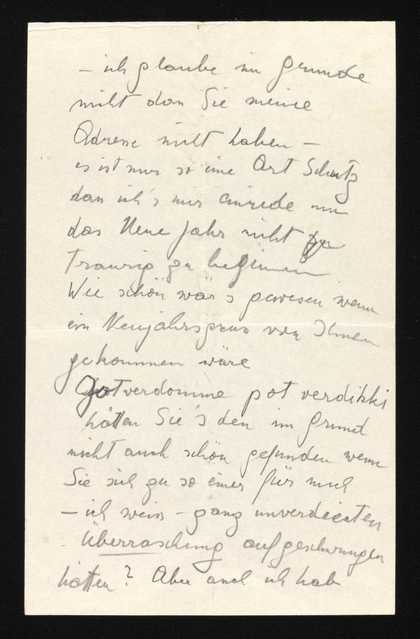 – ich glaube im Grunde
nicht dass Sie meine
Adresse nicht haben –
es ist nur so eine Art Schutz
dass ich's mir einrede um
das Neue Jahr nicht zu
traurig zu beginnen
Wie schön wär's gewesen wenn
ein Neujahrsgruss von Ihnen
gekommen wäre
Gotverdomme pot verdikki
hätten Sie's den im Grund
nicht auch schön gefunden wenn
Sie sich zu so einer für mich
– ich weiss – ganz unverdienten
Überraschung aufgeschwungen
hätten? Aber auch ich hab